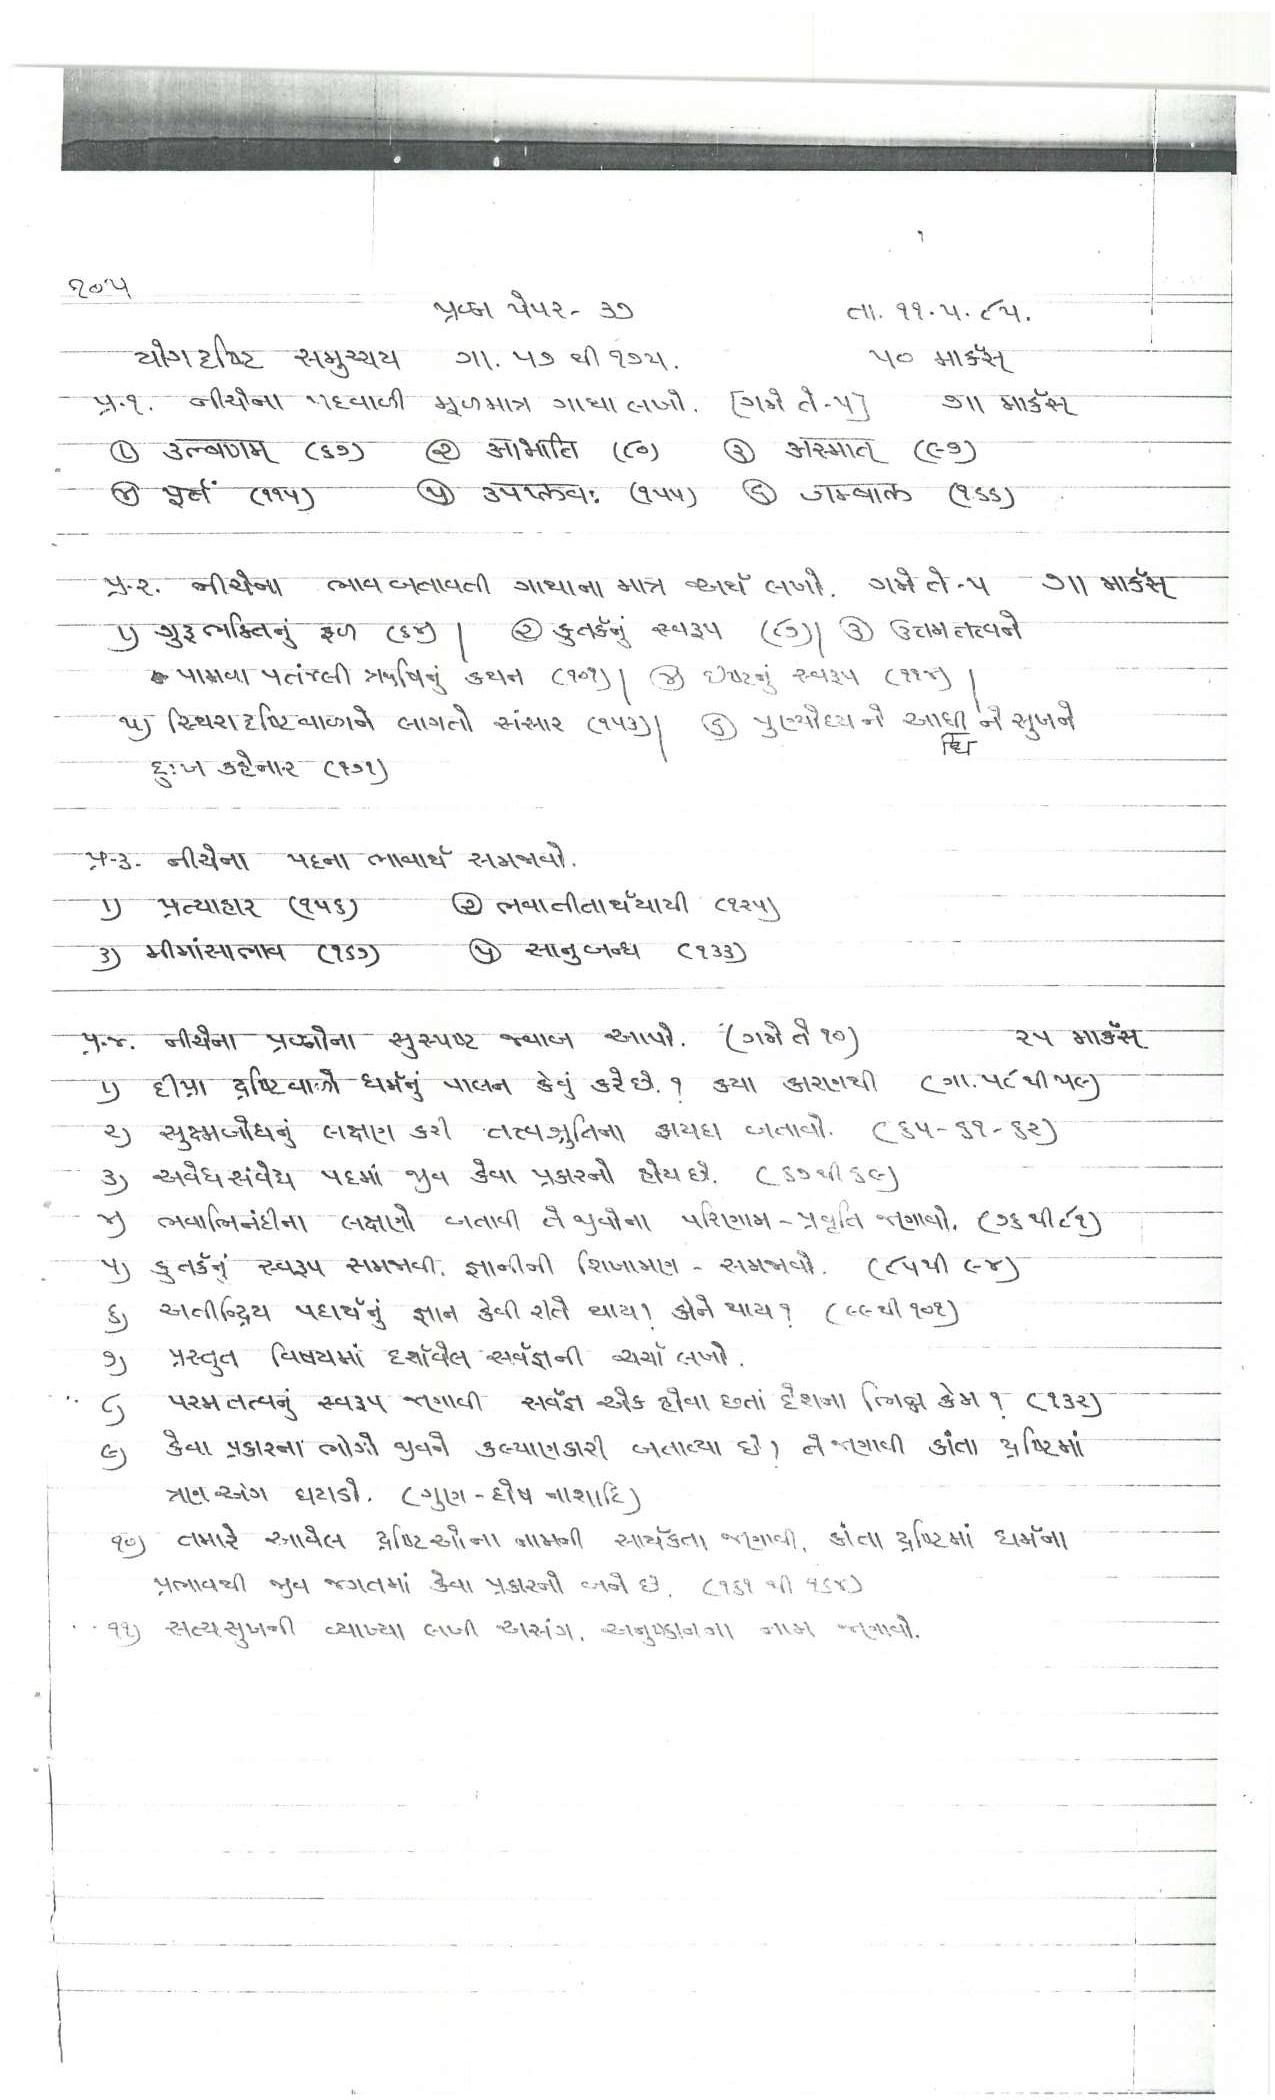 ૧૦૫
પ્રશ્ન પેપર - ૩૭ તા. ૧૧.૫.૮૫.
યોગદૃષ્ટિ સમુચ્ચય ગા. ૫૭ થી ૧૭૫. ૫૦ માર્કસ્
પ્ર.૧. નીચેના પદવાળી મૂળમાત્ર ગાથા લખો. [ગમે તે-૫] ૭।। માર્કસ્
૧ उल्बणम् (૬૭) ૨ आभाति (૮૦) ૩ अस्मात् (૯૭)
૪ पूर्त (૧૧૫) ૫ उपप्लवः (૧૫૫) ૬ जम्बाल (૧૬૬)
પ્ર.૨. નીચેના ભાવ બતાવતી ગાથાના માત્ર અર્થ લખો. ગમે તે-૫ ૭।। માર્કસ્
૧) ગુરૂભક્તિનું ફળ (૬૪) | ૨ કુતર્કનું સ્વરૂપ (૮૭) | ૩ ઉત્તમતત્વને
પામવા પતંજલી ઋષિનું કથન (૧૦૧) | ૪ ઇષ્ટનું સ્વરૂપ (૧૧૪) |
૫) સ્થિરાદૃષ્ટિવાળાને લાગતો સંસાર (૧૫૩) | ૬ પુણ્યોદયને આધીને સુખને
ધિ
દુઃખ કહેનાર (૧૭૧)
પ્ર-૩. નીચેના પદના ભાવાર્થ સમજાવો.
૧) પ્રત્યાહાર (૧૫૬) ૨ ભવાતીતાર્થયાયી (૧૨૫)
૩) મીમાંસાભાવ (૧૬૭) ૫ સાનુબન્ધ (૧૩૩)
પ્ર.૪. નીચેના પ્રશ્નોના સુસ્પષ્ટ જવાબ આપો. (ગમે તે ૧૦) ૨૫ માર્કસ્
૧) દીપ્રા દ્રષ્ટિવાળો ધર્મનું પાલન કેવું કરે છે. ? કયા કારણથી (ગા. ૫૮ થી ૫૯)
૨) સુક્ષ્મબોધનું લક્ષણ કરી તત્વશ્રુતિના ફાયદા બતાવો. (૬૫-૬૧-૬૨)
૩) અવેધસંવેદ્ય પદમાં જીવ કેવા પ્રકારનો હોય છે. (૬૭ થી ૬૯)
૪) ભવાભિનંદીના લક્ષણો બતાવી તે જીવોના પરિણામ - પ્રવૃતિ જણાવો. (૭૬ થી ૮૧)
૫) કુતર્કનું સ્વરૂપ સમજાવી. જ્ઞાનીની શિખામણ - સમજાવો. (૮૫ થી ૯૪)
૬) અતીન્દ્રિય પદાર્થનું જ્ઞાન કેવી રીતે થાય ? કોને થાય ? (૯૯ થી ૧૦૧)
૭) પ્રસ્તુત વિષયમાં દર્શાવેલ સર્વજ્ઞની ચર્ચા લખો.
૮) પરમતત્વનું સ્વરૂપ જણાવી સર્વજ્ઞ એક હોવા છતાં દેશના ભિન્ન કેમ ? (૧૩૨)
૯) કેવા પ્રકારના ભોગો જીવને કલ્યાણકારી બતાવ્યા છે ? તે જણાવી કાંતા દ્રષ્ટિમાં
ત્રણ અંગ ઘટાડો. (ગુણ - દોષ નાશાદિ)
૧૦) તમારે આવેલ દ્રષ્ટિઓના નામની સાર્થકતા જણાવી, કાંતા દ્રષ્ટિમાં ધર્મના
પ્રભાવથી જીવ જગતમાં કેવા પ્રકારનો બને છે. (૧૬૧ થી ૧૬૪)
૧૧) સત્યસુખની વ્યાખ્યા લખી અસંગ. અનુષ્ઠાનના નામ જણાવો.